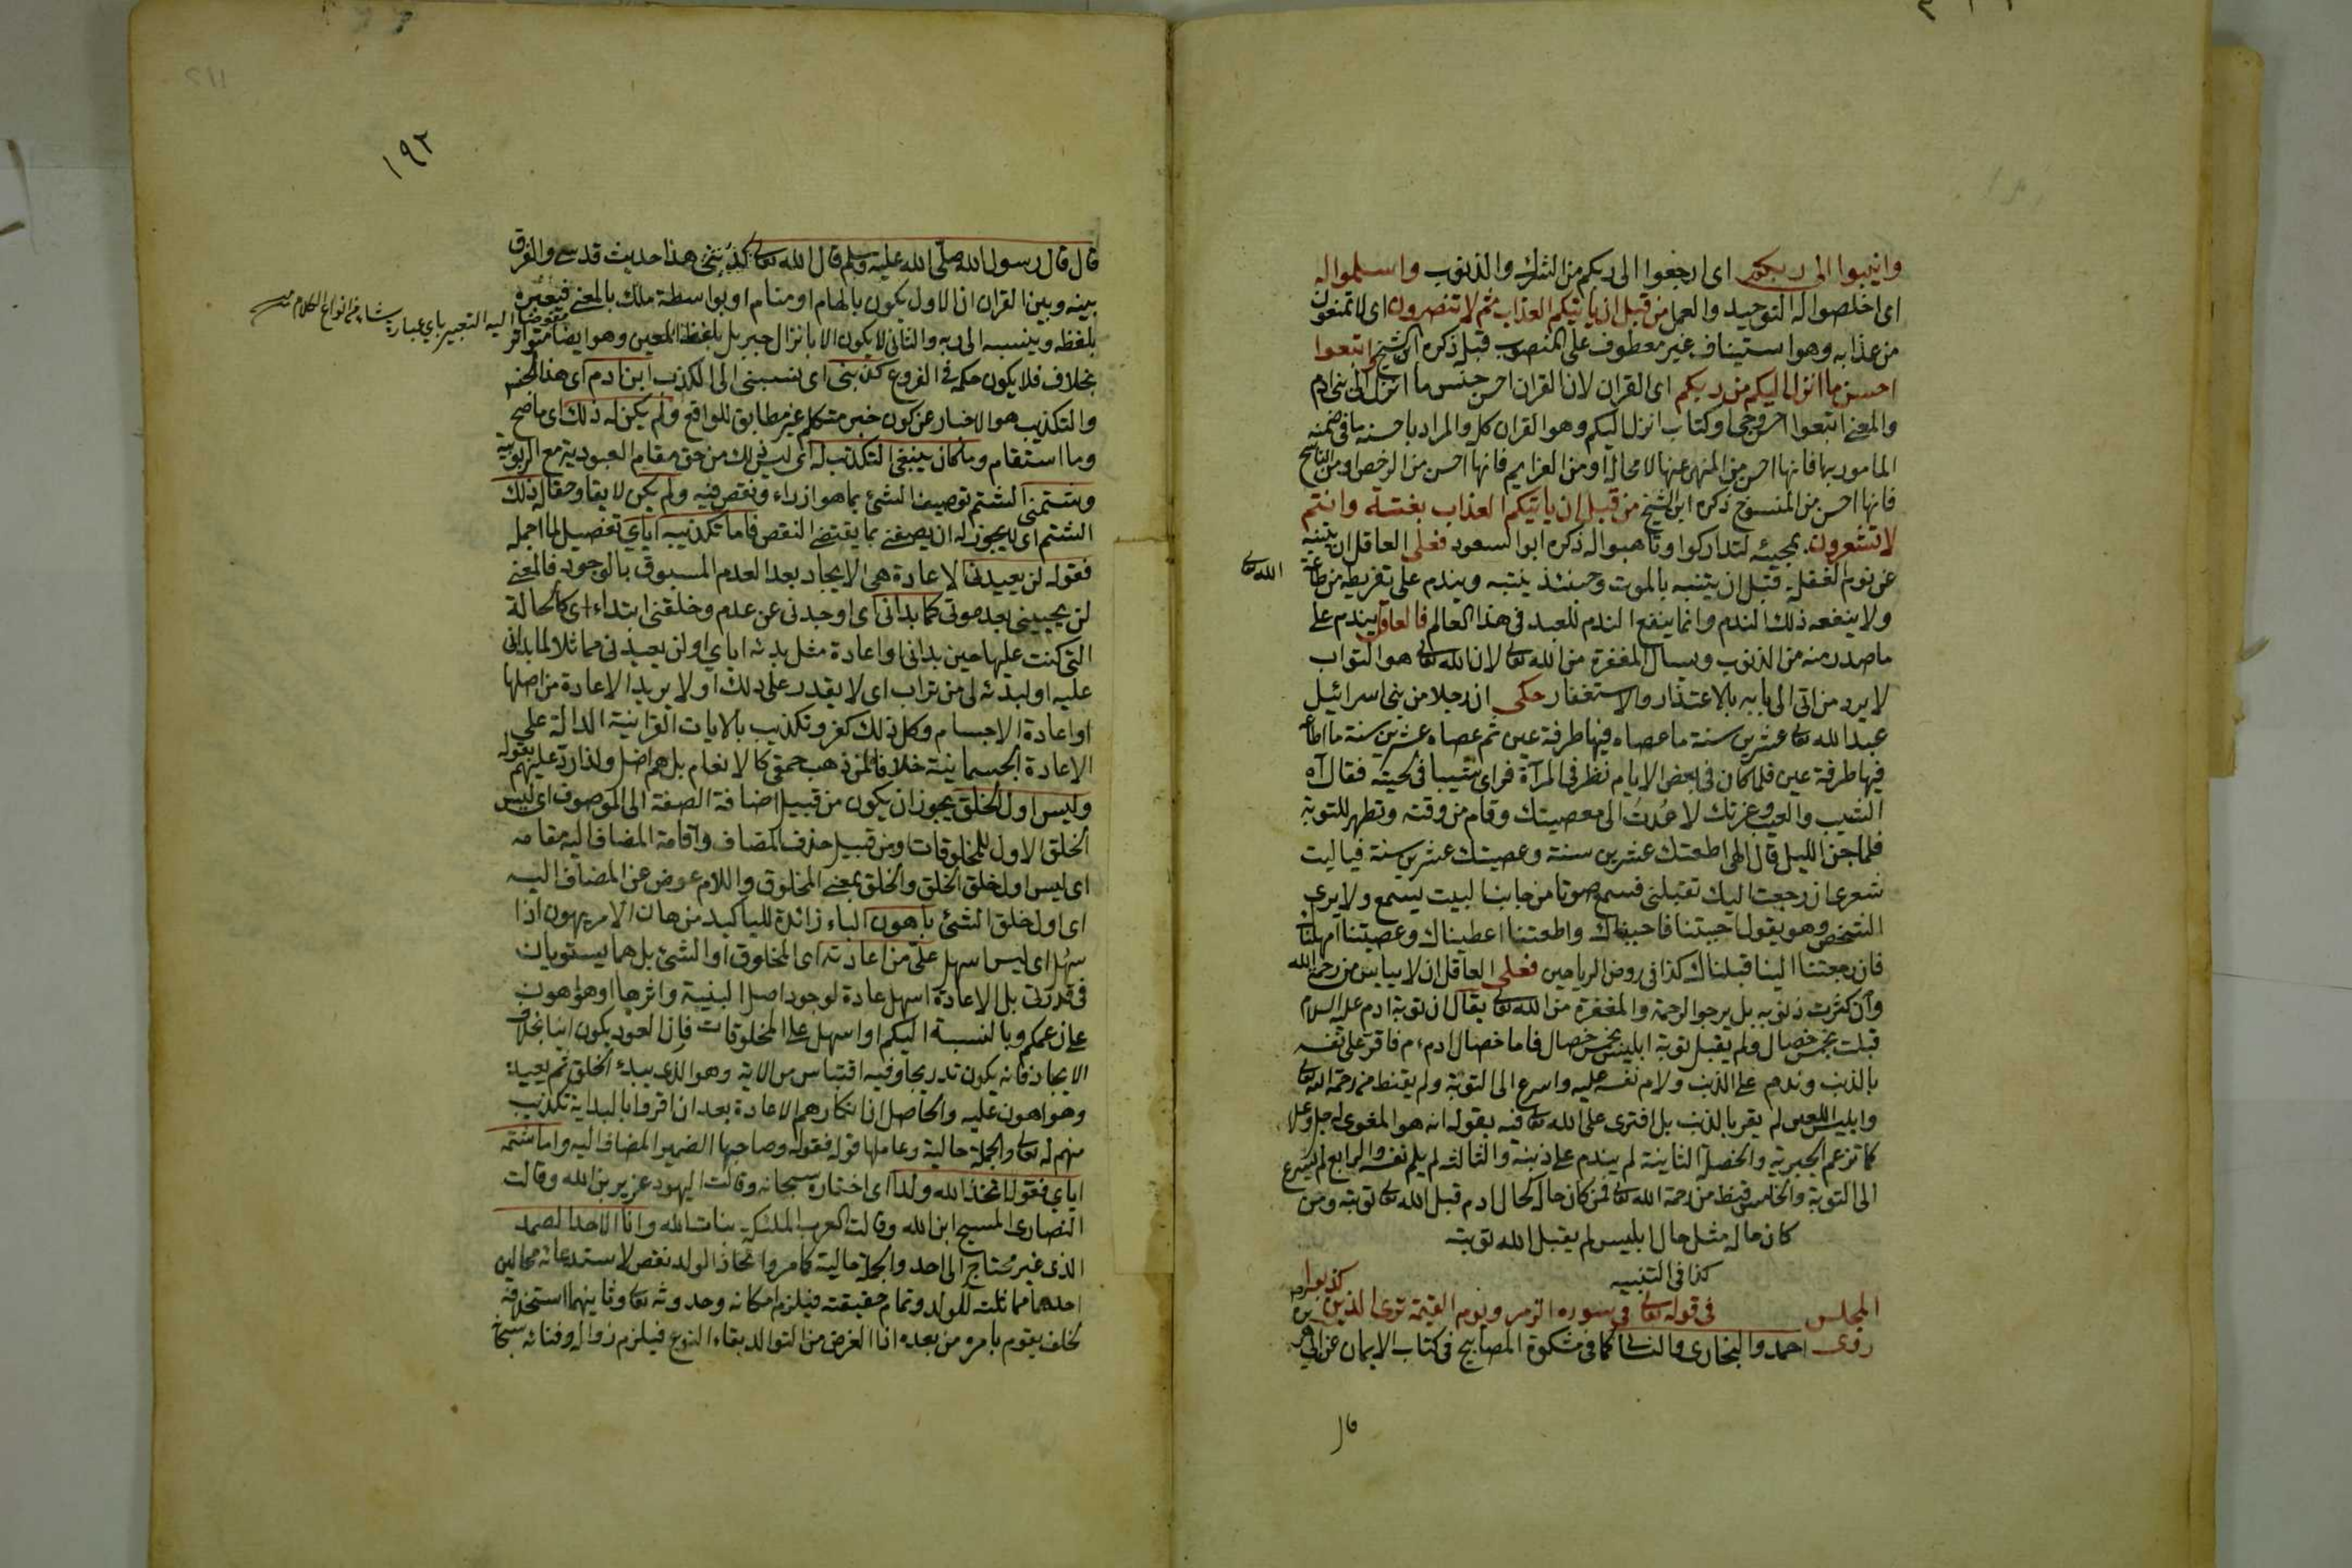 وانيبوا الى ربكم اى ارجعوا الى ربكم من الشرك والذنوب واسلموا له
اى اخلصوا له التوحيد والعمل من قبل ان ياتيكم العذاب ثم لا تنصرون اى لا تمنعون
من عذابه وهو استيناف غير معطوف على المنصوب قبله ذكره ابن الشيخ واتبعوا
احسن ما انزل اليكم من ربكم اى القران لان القران احسن جنس ما انزل الى بنى ادم
والمعنى اتبعوا احسن وحى او كتاب انزل اليكم وهو القران كله والمراد باحسنه ما فى ضمنه
المامور بها فانها احسن من المنهى عنها لا محالة او من العزايم فانها احسن من الرخص او من الناسخ
فانها احسن من المنسوخ ذكره ابن الشيخ من قبل ان ياتيكم العذاب بغتة وانتم
لا تشعرون بمجيئه لتداركوا وتاهبوا له ذكره ابو السعود فعلى العاقل ان يتنبه
عن نوم الغفلة قبل ان يتنبه بالموت وحينئذ ينتبه ويندم على تفريطه من طاعة الله تعالى
ولا ينفعه ذلك الندم وانما ينفع الندم للعبد فى هذا العالم فالعاقل يندم على
ما صدر منه من الذنوب ويسال المغفرة من الله تعالى لان الله تعالى هو التواب
لا يرد من اتى الى بابه بالاعتذار والاستغفار حكى ان رجلا من بنى اسرائيل
عبد الله تعالى عشرين سنة ما عصاه فيها طرفة عين ثم عصاه عشرين سنة ما اطاعه
فيها طرفة عين فلما كان فى بعض الايام نظر فى المرآة فراى شيبا فى لحيته فقال آه
الشيب والعيب وعزتك لا عُدتُ الى معصيتك وقام من وقته وتطهر للتوبة
فلما جن الليل قال الهى اطعتك عشرين سنة وعصيتك عشرين سنة فيا ليت
شعرى ان رجعت اليك تقبلنى فسمع صوتا من جانب البيت يسمع ولا يرى
الشخص وهو يقول احبتنا فاحببناك واطعتنا اعطيناك وعصيتنا امهلناك
فان رجعتنا الينا قبلناك كذا فى روض الرياحين فعلى العاقل ان لا يياس من رحمة الله
وان كثرت ذنوبه بل يرجو الرحمة والمغفرة من الله تعالى يقال ان توبة ادم عليه السلام
قبلت بخمس خصال ولم يقبل توبة ابليس بخمس خصال فاما خصال ادم ء م فاقر على نفسه
بالذنب وندم على الذنب ولام نفسه عليه واسرع الى التوبة ولم يقنط من رحمة الله تعالى
وابليس اللعين لم يقر بالذنب بل افترى على الله تعالى فيه بقوله انه هو المغوى له جل وعلا
كما تزعم الجبرية والخصلة الثانية لم يندم على ذنبه والثالثة لم يلم نفسه والرابع لم يسرع
الى التوبة والخامس قنط من رحمة الله تعالى فمن كان حاله كحال ادم قبل الله تعالى توبته ومن
كان حاله مثل حال ابليس لم يقبل الله توبته
كذا فى التنبيه
المجلس فى قوله تعالى فى سورة الزمر ويوم القيمة ترى الذين كذبوا
روى احمد والبخارى والنسائى كما فى مشكوة المصابيح فى كتاب الايمان عن ابى هريرة
قال
١٩٢
قال قال رسول الله صلى الله عليه وسلم قال الله تعالى كذبنى هذا حديث قدسى والفرق
بينه وبين القران ان الاول يكون بالهام او منام او بواسطة ملك بالمعنى فيعبره
مفوضا اليه التعبير باى عبارة شاء من انواع الكلام
بلفظه وينسبه الى ربه والثانى لا يكون الا بانزال جبريل بلفظه المعين وهو ايضا متواتر
بخلاف فلا يكون حكمه فى الفروع كذبنى اى نسبنى الى الكذب ابن ادم اى هذا الجنس
والتكذيب هو الاخبار عن كون خبر متكلم غير مطابق للواقع ولم يكن له ذلك اى ما صح
وما استقام وما كان ينبغى التكذيب له اى ليس ذلك من حق مقام العبودية مع الربوبية
وشتمنى الشتم توصيف الشئ بما هو ازراء ونقص فيه ولم يكن لايقا وحقا له ذلك
الشتم اى لا يجوز له ان يصفنى بما يقتضى النقص فاما تكذيبه اياي تفصيل لما اجمله
فقوله لن يعيدنى الاعادة هى الايجاد بعد العدم المسبوق بالوجود فالمعنى
لن يحيينى بعد موتى كما بدانى اى اوجدنى عن عدم وخلقنى ابتداء اى كالحالة
التى كنت عليها حين بدانى او اعادة مثل بدئه اياي او لن يعيدنى مماثلا لما بدانى
عليه او لبدئه لى من تراب اى لا يقدر على ذلك او لا يريد الاعادة من اصلها
او اعادة الاجسام وكل ذلك كفر وتكذيب بالايات القرانية الدالة على
الاعادة الجسمانية خلافا لمن ذهب حمقى كالانعام بل هم اضل ولذا رد عليهم بقوله
وليس اول الخلق يجوز ان يكون من قبيل اضافة الصفة الى الموصوف اى ليس
الخلق الاول للمخلوقات او من قبيل حذف المضاف واقامة المضاف اليه مقامه
اى ليس اول خلق الخلق والخلق بمعنى المخلوق واللام عوض عن المضاف اليه
اى اول خلق الشئ باهون الباء زائدة للتاكيد من هان الامر يهون اذا
سهل اى ليس اسهل علىّ من اعادته اى المخلوق او الشئ بل هما يستويان
فى قدرتى بل الاعادة اسهل عادة لوجود اصل البنية واثرها او هو اهون
على زعمكم وبالنسبة اليكم او اسهل على المخلوقات فان العود يكون انيا بخلاف
الايجاد فانه يكون تدريجا وفيه اقتباس من الاية وهو الذى يبدء الخلق ثم يعيده
وهو اهون عليه والحاصل ان انكارهم الاعادة بعد ان اقروا بالبداية تكذيب
منهم له تعالى والجملة حالية وعاملها قوله فقوله وصاحبها الضمير المضاف اليه واما شتمه
اياي فقوله اتخذ الله ولدا اى اختاره سبحانه وقالت اليهود عزير بن الله وقالت
النصارى المسيح ابن الله وقالت العرب الملئكة بنات الله وانا الاحد الصمد
الذى غير محتاج الى احد والجملة حالية كما مر واتخاذ الولد نقص لاستدعائه محالين
احدهما مماثلته للولد وتمام حقيقته فيلزم امكانه وحدوثه تعالى وثانيهما استخلافه
لخلف يقوم بامره من بعده اذ الغرض من التوالد بقاء النوع فيلزم زواله وفنائه